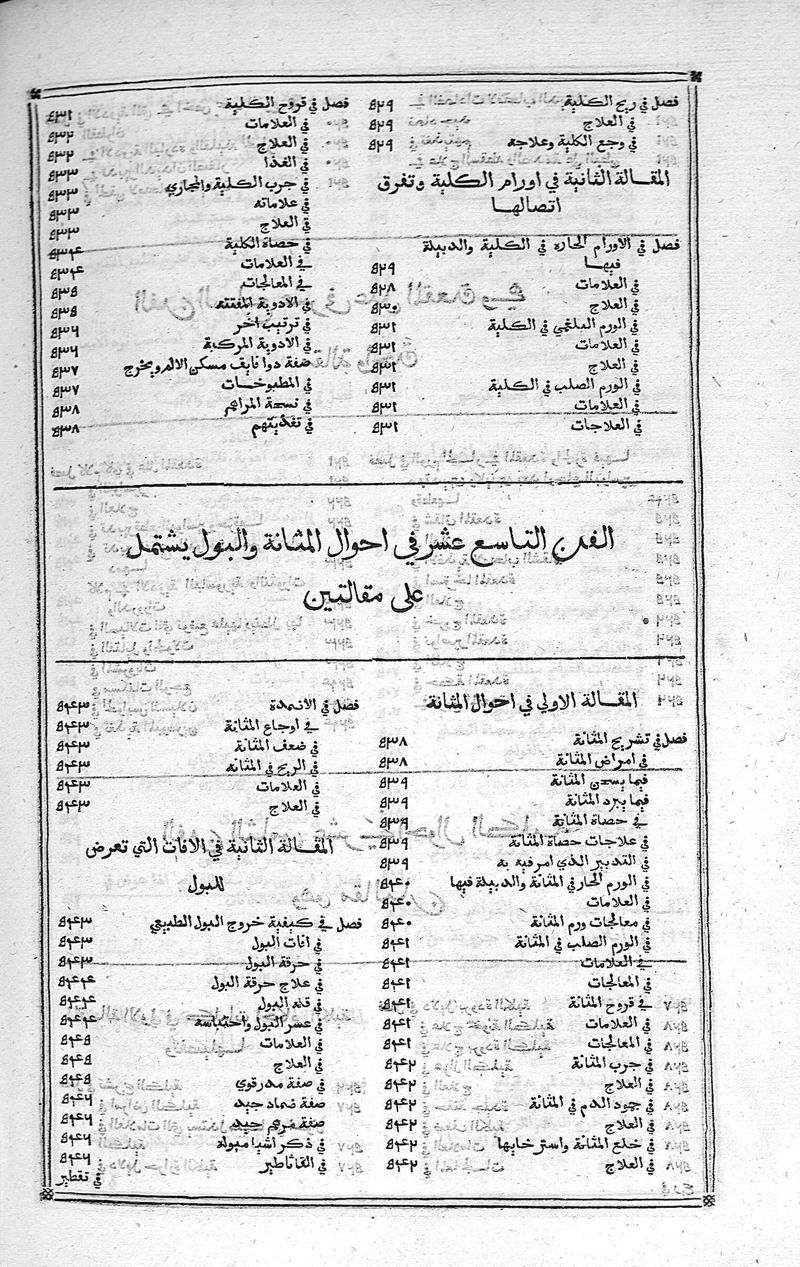 فصل في ريح الكلية ٥٢٩
في العلاج ٥٢٩
في وجع الكلية وعلاجه ٥٢٩
المقالة الثانية في اورام الكلية وتفرق
اتصالها
فصل في الاورام الحاره في الكلية والدبيلة
فيها ٥٢٩
في العلامات ٥٢٨
في العلاج ٥٣٠
في الورم البلغمي في الكلية ٥٣١
في العلامات ٥٣١
في العلاج ٥٣١
في الورم الصلب في الكلية ٥٣١
في العلامات ٥٣١
في العلاجات ٥٣١
فصل في قروح الكلية ٥٣١
في العلامات ٥٣٢
في العلاج ٥٣٢
في الغذا ٥٣٣
في جرب الكلية والمجاري ٥٣٣
في علاماته ٥٣٣
في العلاج ٥٣٣
في حصاة الكلية ٥٣٤
في العلامات ٥٣٤
في المعالجات ٥٣٥
في الادوية المفتته ٥٣٥
في ترتيب اخر ٥٣٦
في الادوية المركبة ٥٣٦
صفة دوا فايق مسكن الالم ويخرج ٥٣٧
في المطبوخات ٥٣٧
في نسخة المراهم ٥٣٨
في تغذيتهم ٥٣٨
الفن التاسع عشر في احوال المثانة والبول يشتمل
على مقالتين
المقالة الاولي في احوال المثانة
فصل في تشريح المثانة ٥٣٨
في امراض المثانة ٥٣٨
فيما يسخن المثانة ٥٣٩
فيما يبرد المثانة ٥٣٩
في حصاة المثانة ٥٣٩
في علاجات حصاة المثانة ٥٣٩
في التدبير الذي امر فيه به ٥٣٩
في الورم الحار في المثانة والدبيلة فيها ٥٤٠
في العلامات ٥٤٠
في معالجات ورم المثانة ٥٤٠
في الورم الصلب في المثانة ٥٤١
في العلامات ٥٤١
في المعالجات ٥٤١
في قروح المثانة ٥٤١
في العلامات ٥٤١
في المعالجات ٥٤١
في جرب المثانة ٥٤٢
في العلاج ٥٤٢
في جمود الدم في المثانة ٥٤٢
في العلاج ٥٤٢
في خلع المثانة واسترخايها ٥٤٢
في العلاج ٥٤٢
فصل في الاضمدة ٥٤٣
في اوجاع المثانة ٥٤٣
في ضعف المثانة ٥٤٣
في الريح في المثانة ٥٤٣
في العلامات ٥٤٣
في العلاج ٥٤٣
المقالة الثانية في الافات التي تعرض
للبول
فصل في كيفية خروج البول الطبيعي ٥٤٣
في افات البول ٥٤٣
في حرقة البول ٥٤٣
في علاج حرقة البول ٥٤٤
في قلة البول ٥٤٤
في عسر البول واحتباسه ٥٤٤
في العلامات ٥٤٥
في العلاج ٥٤٥
في صفة مدر قوي ٥٤٥
صفة ضماد جيد ٥٤٦
صفة مرهم جيد ٥٤٦
في ذكر اشيا مبولة ٥٤٦
في القاثاطير ٥٤٦
في تقطير